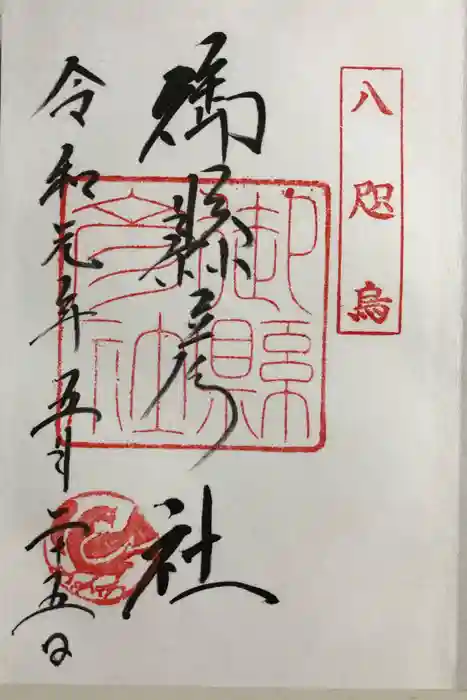 八咫烏
御縣彦社
御縣
彦社
令和元年五月二十五日